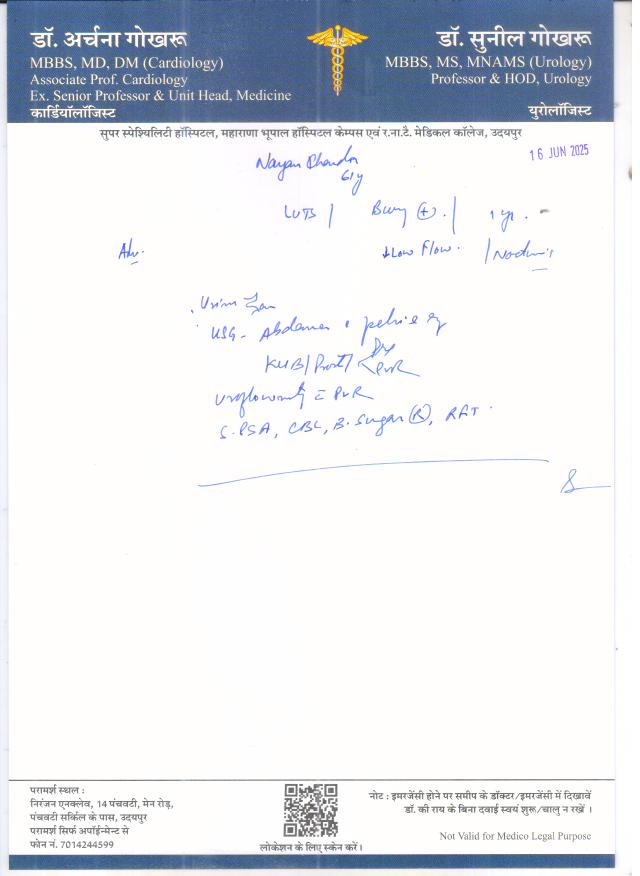 डॉ. अर्चना गोखरू
MBBS, MD, DM (Cardiology)
Associate Prof. Cardiology
Ex. Senior Professor & Unit Head, Medicine
कार्डियॉलॉजिस्ट
डॉ. सुनील गोखरू
MBBS, MS, MNAMS (Urology)
Professor & HOD, Urology
युरोलॉजिस्ट
सुपर स्पेश्यिलिटी हॉस्पिटल, महाराणा भूपाल हॉस्पिटल केम्पस एवं र.ना.टै. मेडिकल कॉलेज, उदयपुर
16 JUN 2025
61y
LUTS | Burning (+). | 1 yr.
Adv. ↓Low Flow.
USG - Abdomen pelvis
KUB/Prost/ PVR
Uroflowmetry PVR
S.PSA, CBC, B.Sugar (R), RFT
परामर्श स्थल :
निरंजन एनक्लेव, 14 पंचवटी, मेन रोड़,
पंचवटी सर्किल के पास, उदयपुर
परामर्श सिर्फ अपॉईन्मेन्ट से
फोन नं. 7014244599
लोकेशन के लिए स्केन करें।
नोट : इमरजेंसी होने पर समीप के डॉक्टर/इमरजेंसी में दिखावें
डॉ. की राय के बिना दवाई स्वयं शुरू/चालु न रखें ।
Not Valid for Medico Legal Purpose